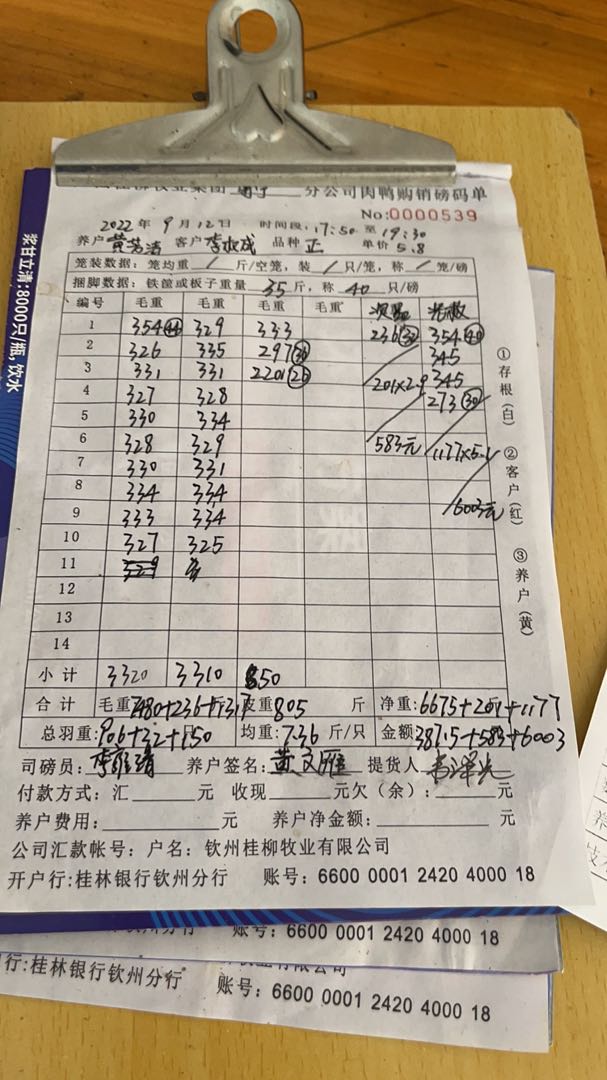 桂柳牧业集团 南宁 分公司肉鸭购销磅码单
No:0000539
2022年9月12日 时间段:17:50至19:30
养户 黄芳清 客户 李 成 品种 正 单价 5.8
笼装数据:笼均重 / 斤/空笼,装 / 只/笼,称 / 笼/磅
捆脚数据:铁筐或板子重量 35 斤,称 40 只/磅
编号 毛重 毛重 毛重 毛重
1 354(44) 329 333 236(32) 354(40)
2 326 335 297(36) 345
3 331 331 2201(26) 201×2.9 345
4 327 328 273(30)
5 330 334
6 328 329 583元 1177×5.1
7 330 331
8 334 334 6003元
9 333 334
10 327 325
11 329
12
13
14
小计 3320 3310 850
合计 毛重:7480+236+1317 皮重:805 斤 净重:6675+201+1177
总羽重:906+32+150 均重:7.36 斤/只 金额:38715+583+6003
司磅员: 养户签名:黄文雁 提货人
付款方式:汇 元 收现 元欠(余): 元
养户费用: 元 养户净金额: 元
公司汇款帐号:户名:钦州桂柳牧业有限公司
开户行:桂林银行钦州分行 账号:6600 0001 2420 4000 18
①存根(白) ②客户(红) ③养户(黄)
浆甘立清,8000只/瓶,饮水
分行 账号:6600 0001 2420 4000 18
行:桂林银行钦州分行 账号:6600 0001 2420 4000 18